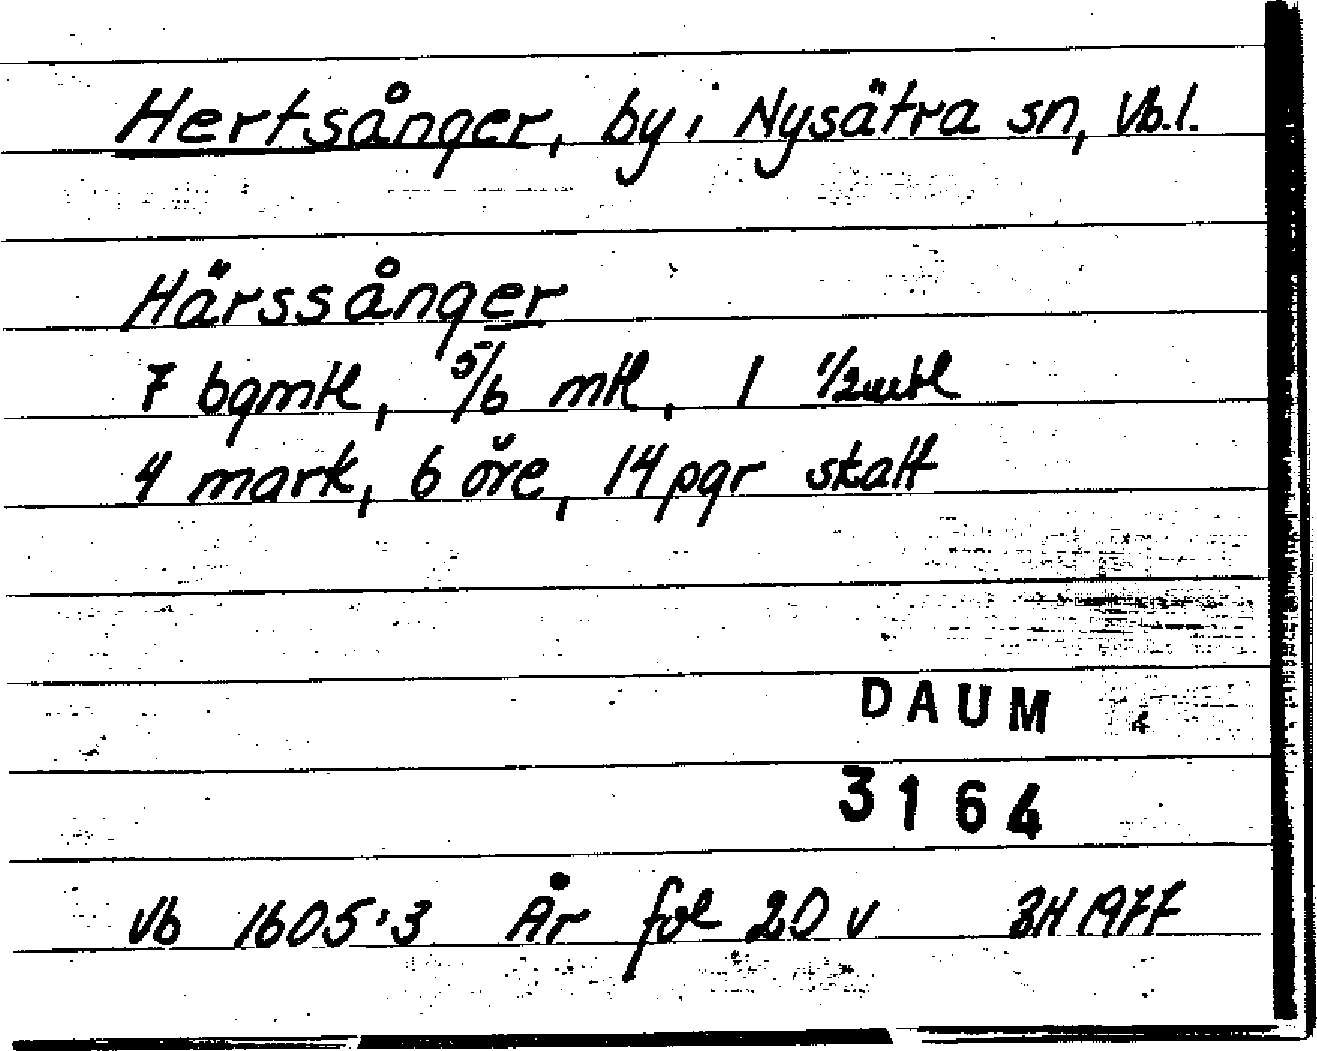 Hertsånger, by i Nysätra sn, Vb.l.
Härssånger
7 bgmtl, 5/6 mtl, 1 1/2mtl
4 mark, 6 öre, 14 pgr skatt
DAUM
3164
Vb 1605:3 År fol 20 v BH 1977